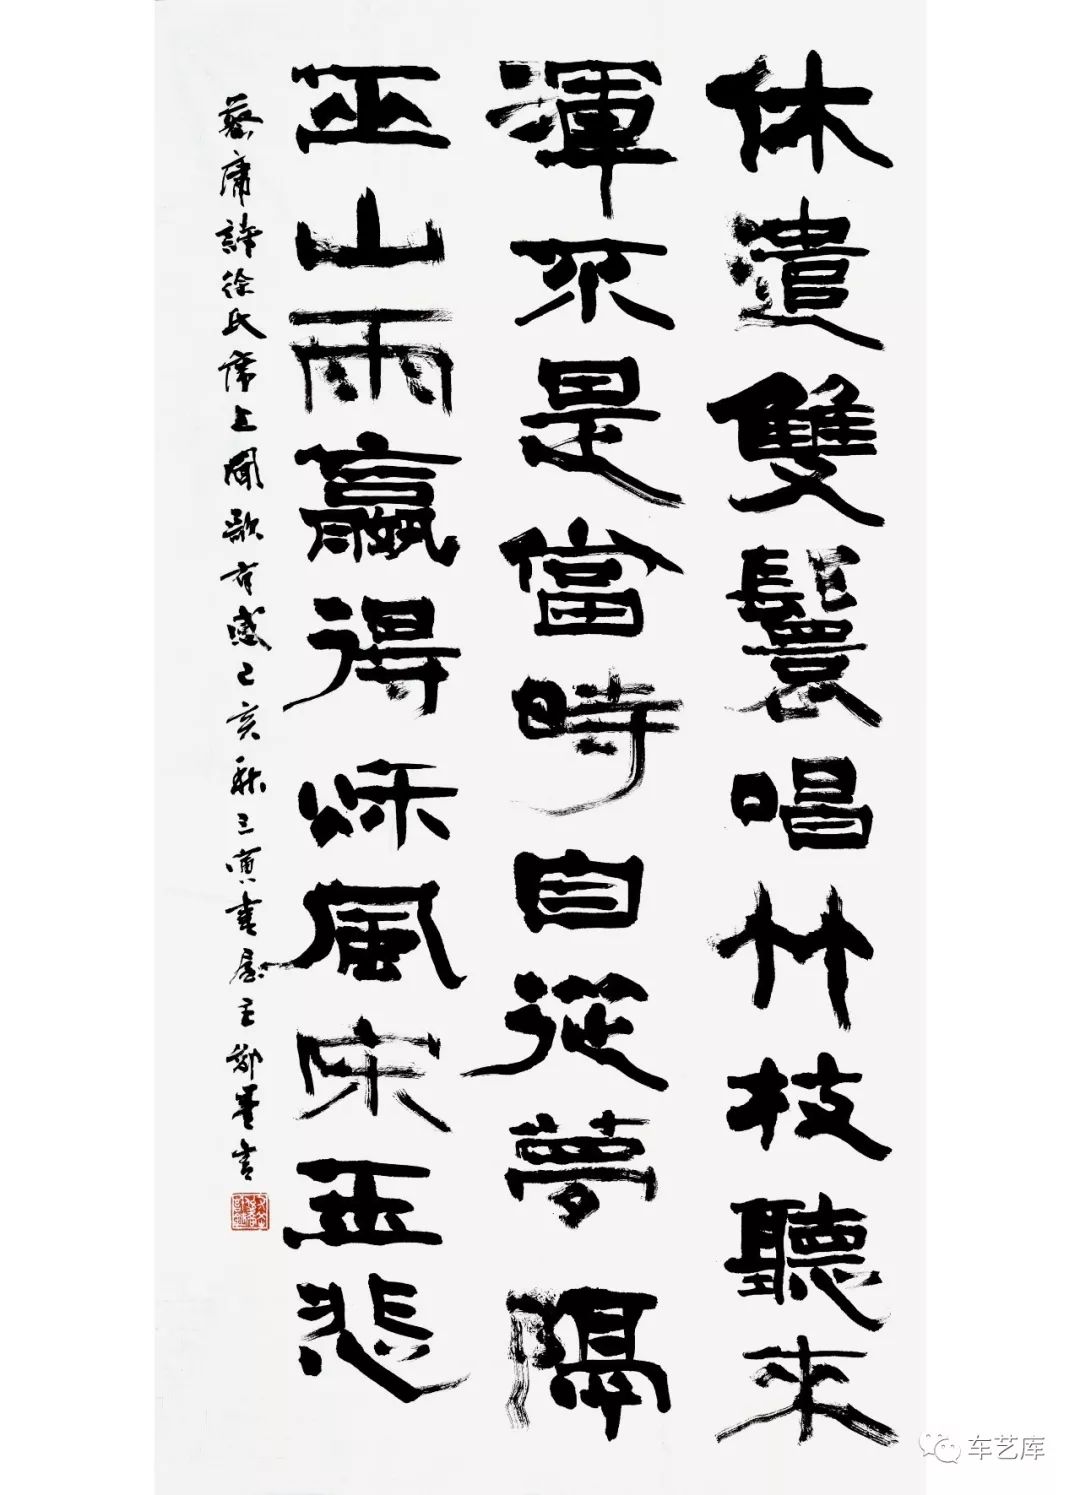 休遣雙鬟唱竹枝聽來
渾不是當時自從夢隔
巫山雨贏得秌風宋玉悲
蔡庸詩徐氏席上聞歌有感己亥秋三書屋主鄭書
车艺库